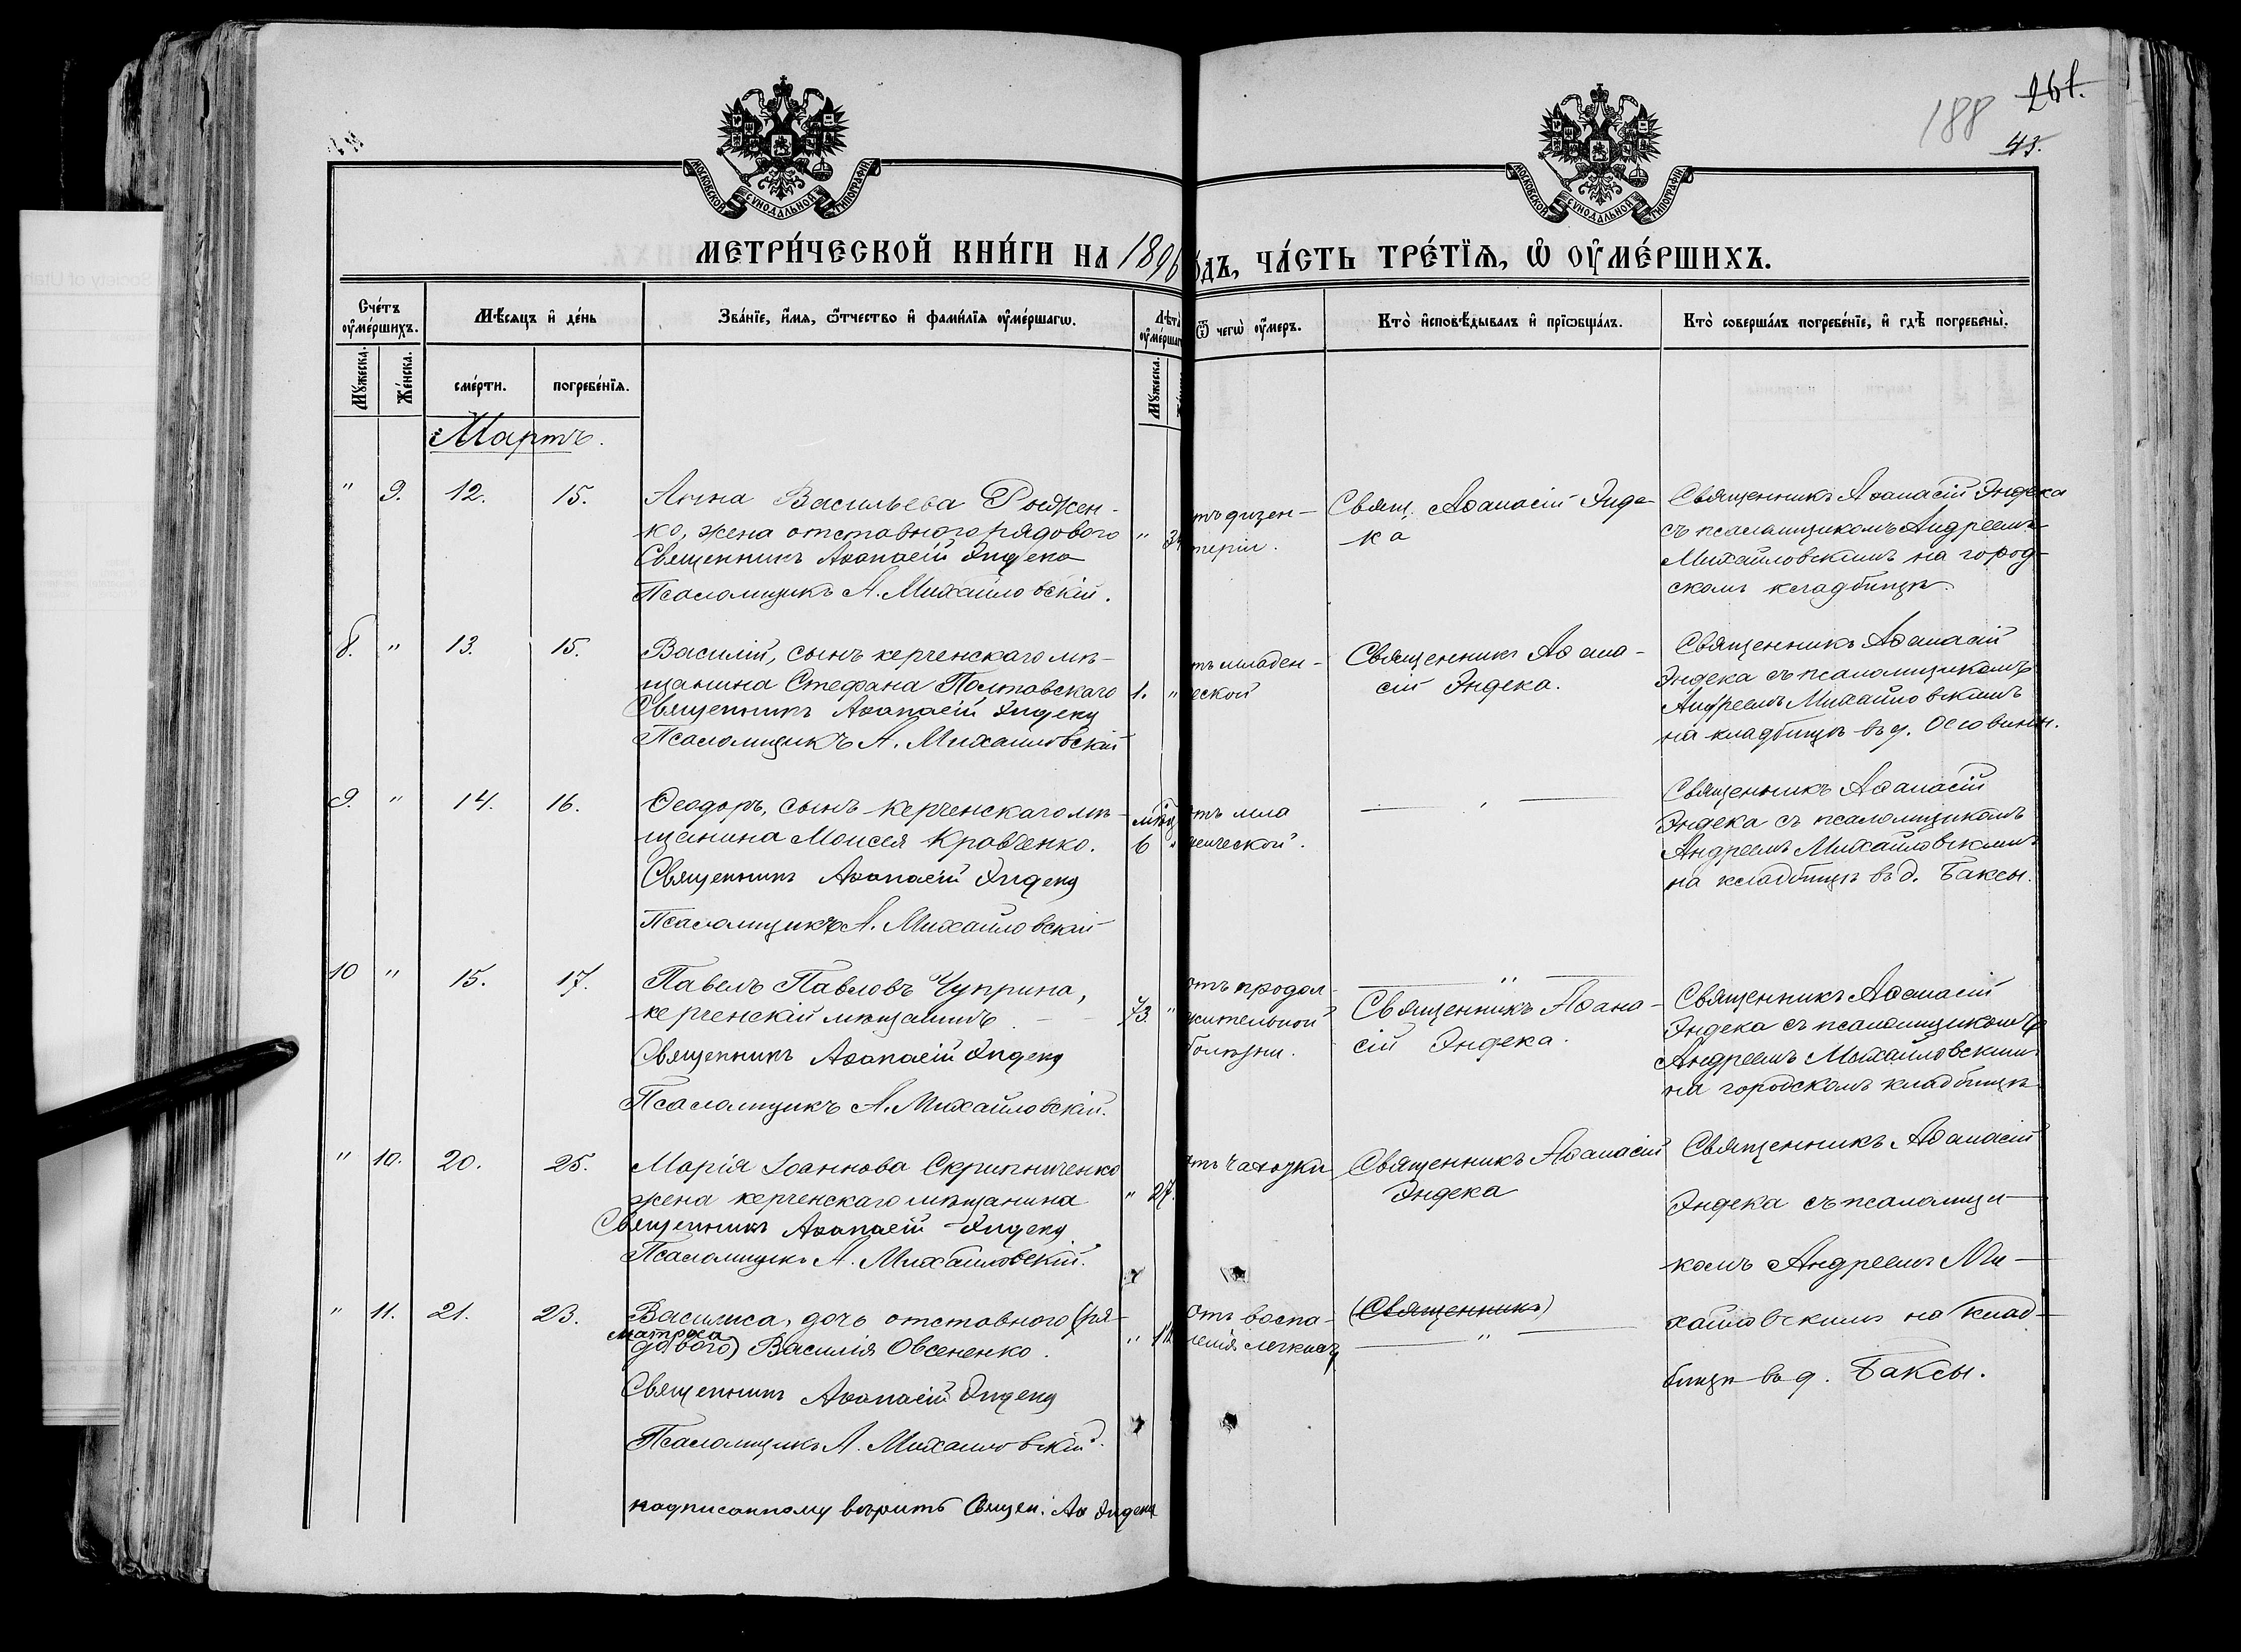 188
261.
43.
МОСКОВСКОЙ СѴНОДАЛЬНОЙ ТИПОГРАФІИ
МОСКОВСКОЙ СѴНОДАЛЬНОЙ ТИПОГРАФІИ
МЕТРИ́ЧЕСКОЙ КНИ́ГИ НА 1896
ѠДЪ, ЧА́СТЬ ТРЕ́ТЇѦ, Ѡ҆ ОУ҆МЕ́РШИХЪ.
Сче́тъ оу҆ме́ршихъ.
Мꙋ́жеска.
Же́нска.
Мѣ́сѧцъ и҆ де́нь
сме́рти.
погребе́нїѧ.
Зва́нїе, и҆́мѧ, ѻ҆́тчество и҆ фами́лїѧ оу҆ме́ршагѡ.
Лѣта̀
оу҆ме́ршаг
Мꙋ́жеска.
Ѿ чегѡ̀ оу҆́меръ.
Кто̀ и҆сповѣ́дывалъ и҆ прїѡбща́лъ.
Кто̀ соверша́лъ погребе́нїе, и҆ гдѣ̀ погребены̀.
Мартъ.
" 9. 12. 15.
Анна Васильева Рожен-
ко, жена отставного рядового
Священникъ Аѳанасій Эндека
Псаломщикъ А. Михайловскій.
" 34
тъ дизен-
теріи.
Свящ. Аѳанасій Энде-
ка
Священникъ Аѳанасій Эндека
съ псаломщикомъ Андреемъ
Михайловскимъ на город-
скомъ кладбищѣ.
8. " 13. 15.
Василій, сынъ керченскаго мѣ-
щанина Стефана Полтавскаго
Священникъ Аѳанасій Эндека
Псаломщикъ А. Михайловскій
1. "
тъ младен-
еской
Священникъ Аѳана-
сій Эндека.
Священникъ Аѳанасій
Эндека съ псаломщикомъ
Андреемъ Михайловскимъ
на кладбищѣ въ д. Осовины.
9. " 14. 16.
Ѳеодоръ, сынъ керченскаго мѣ-
щанина Моисея Кравченко.
Священникъ Аѳанасій Эндека
Псаломщикъ А. Михайловскій
мѣсц
6 "
отъ мла
енческой.
Священникъ Аѳанасій
Эндека съ псаломщикомъ
Андреемъ Михайловскимъ
на кладбищѣ въ д. Баксы.
10 " 15. 17.
Павелъ Павловъ Чуприна,
керченскій мѣщанинъ.
Священникъ Аѳанасій Эндека
Псаломщикъ А. Михайловскій.
73. "
отъ продол-
жительной
болѣзни.
"
Священникъ Аѳана-
сій Эндека.
Священникъ Аѳанасій
Эндека съ псаломщикомъ
Андреемъ Михайловскимъ
на городскомъ кладбищѣ
" 10. 20. 25.
Марія Іоаннова Скрипниченко
жена керченскаго мѣщанина
Священникъ Аѳанасій Эндека
Псаломщикъ А. Михайловскій.
" 27.
отъ чахотки
Священникъ Аѳанасій
Эндека
Священникъ Аѳанасій
Эндека съ псаломщи-
комъ Андреемъ Ми-
хайловскимъ на клад-
бищѣ въ д. Баксы.
" 11. 21. 23.
Василиса, дочь отставного (ря-
матроса
дового) Василія Овсененко.
Священникъ Аѳанасій Эндека
Псаломщикъ А. Михайловскій.
" 11.
Отъ воспа-
ленія легкихъ
(Священникъ)
"
надписанному вѣрить Священ. Аѳ Эндека